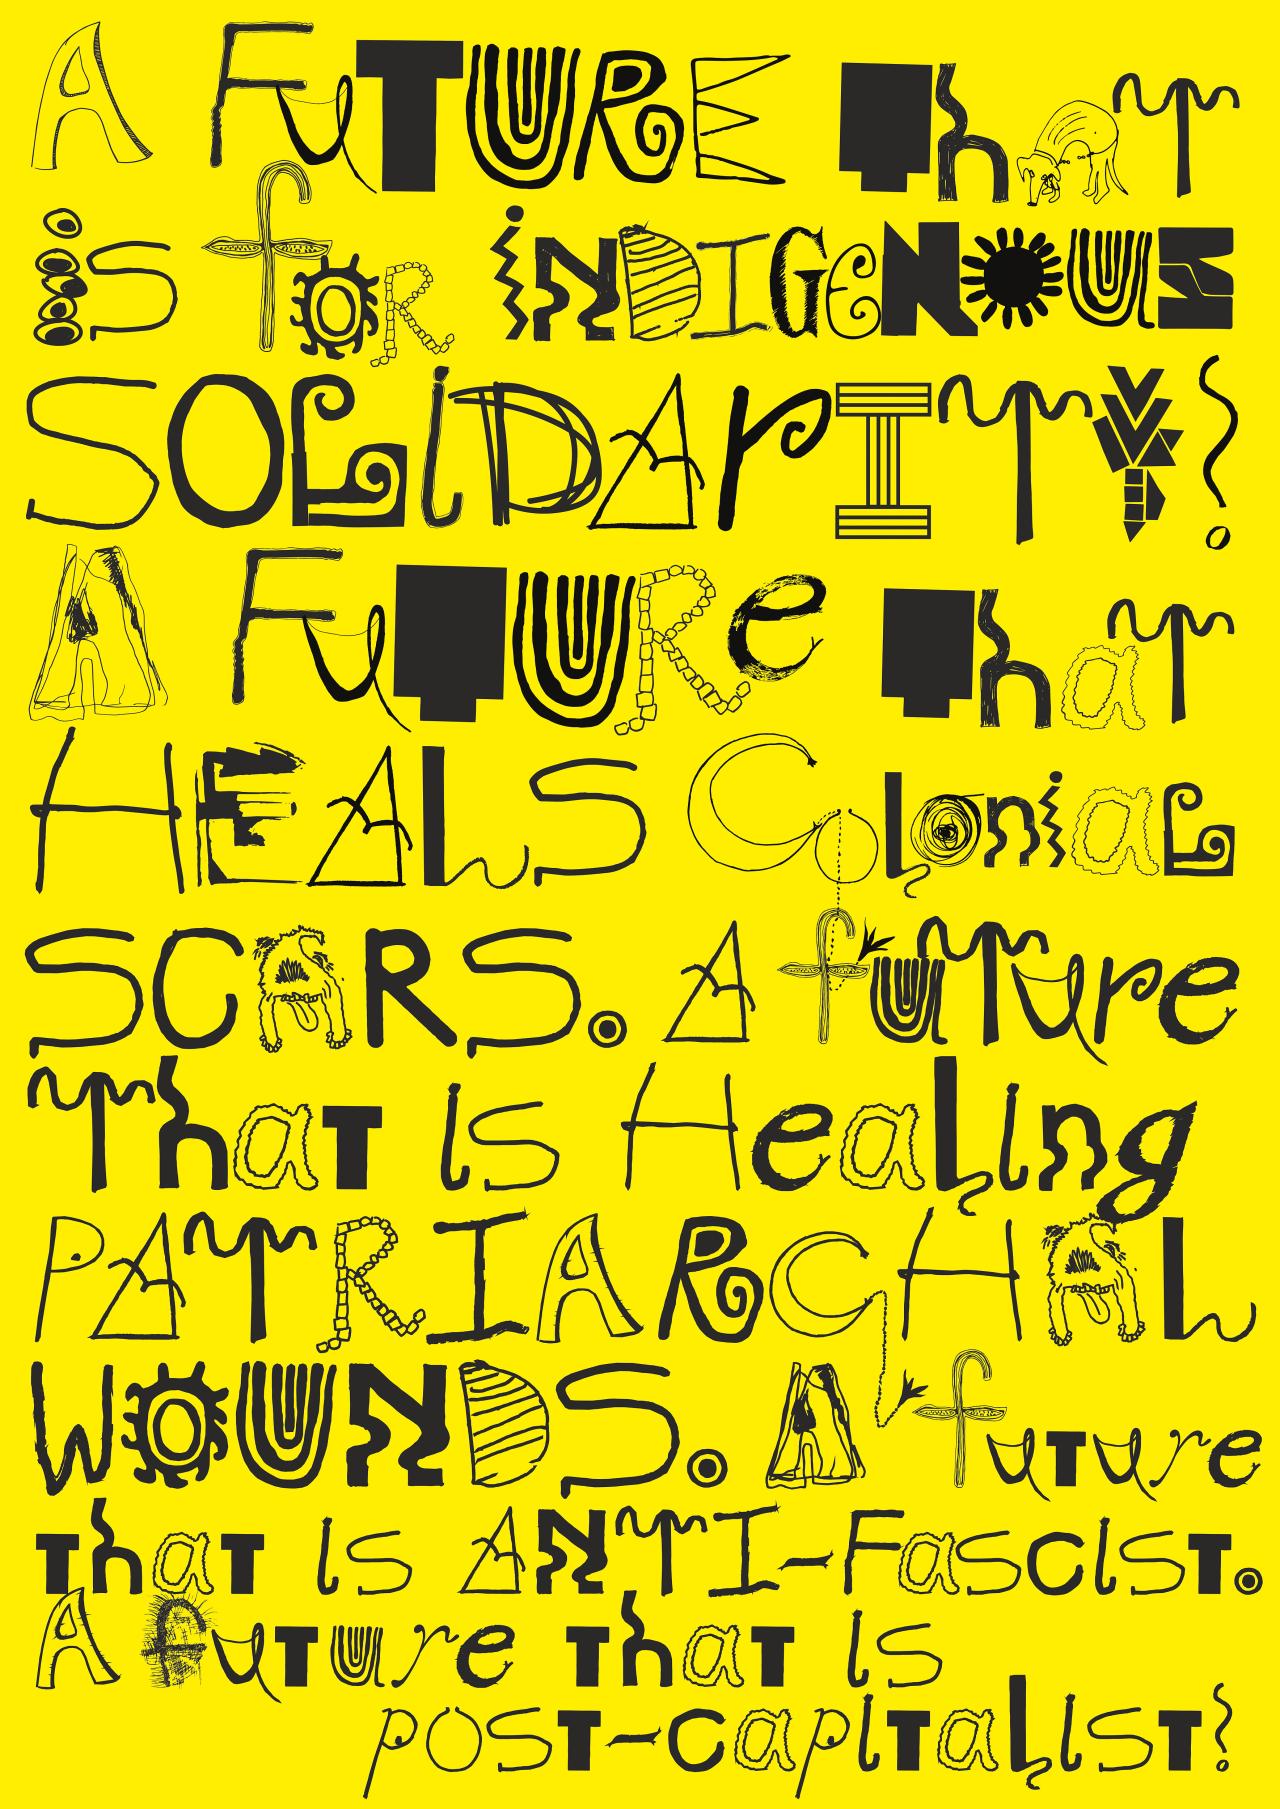 A FuTURE ThaT
is foR iNDIGeNOUS
SOLiDArITY?
A FuTURe ThaT
HEALS ColoniaL
SCARS. A fuTure
ThaT is Healing
PATRIARCHAL
WOUNDS. A fuTure
ThaT is ANTI-FascisT.
A fuTure ThaT is
posT-capiTalisT?